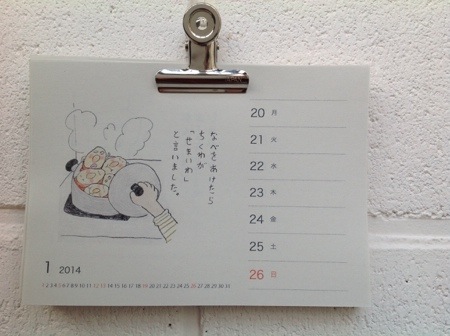 なべをあけたら
ちくわが
「せまいわ」
と言いました。
20 月
21 火
22 水
23 木
24 金
25 土
26 日
1 2014
1 2 3 4 5 6 7 8 9 10 11 12 13 14 15 16 17 18 19 20 21 22 23 24 25 26 27 28 29 30 31